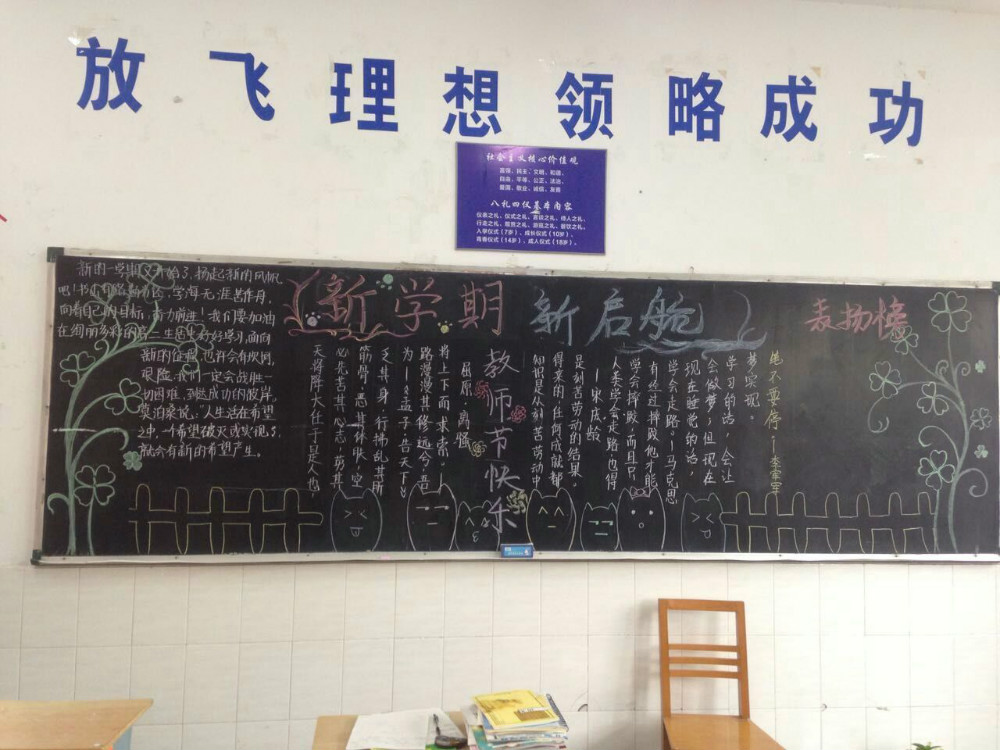 放飞理想领略成功
社会主义核心价值观
富强、民主、文明、和谐、
自由、平等、公正、法治、
爱国、敬业、诚信、友善
八礼四仪基本内容
仪表之礼、仪式之礼、言谈之礼、待人之礼、
行走之礼、观赏之礼、游览之礼、餐饮之礼。
入学仪式(7岁)、成长仪式(10岁)、
青春仪式(14岁)、成人仪式(18岁)。
新学期 新启航
表扬榜
新的一学期又开始了,扬起新的风帆
吧!书山有路勤为径,学海无涯苦作舟,
向着自己的目标,奋力前进!我们要加油
在绚丽多彩的高一生活里好好学习,面向
新的征程,也许会有坎坷,
艰险,我们一定会战胜一
切困难,到达成功的彼岸。
莫泊桑说:"人生活在希望
之中,一个希望破灭或实现了,
就会有新的希望产生。
笔不要停!—李军军
梦实现。
学习的话,会让
会做梦;但现在
现在睡觉的话,
学会走路。—马克思
有经过摔跤他才能
学会摔跤,而且只
人类学会走路,也得
—宋成龄
是刻苦劳动的结果。
得来的,任何成就都
知识是从刻苦劳动中
教师节快乐
屈原《离骚》
将上下而求索。—
路漫漫其修远兮,吾
为—《孟子·告天下》
乏其身,行拂乱其所
筋骨,饿其体肤,空
必先苦其心志,劳其
天将降大任于是人也,